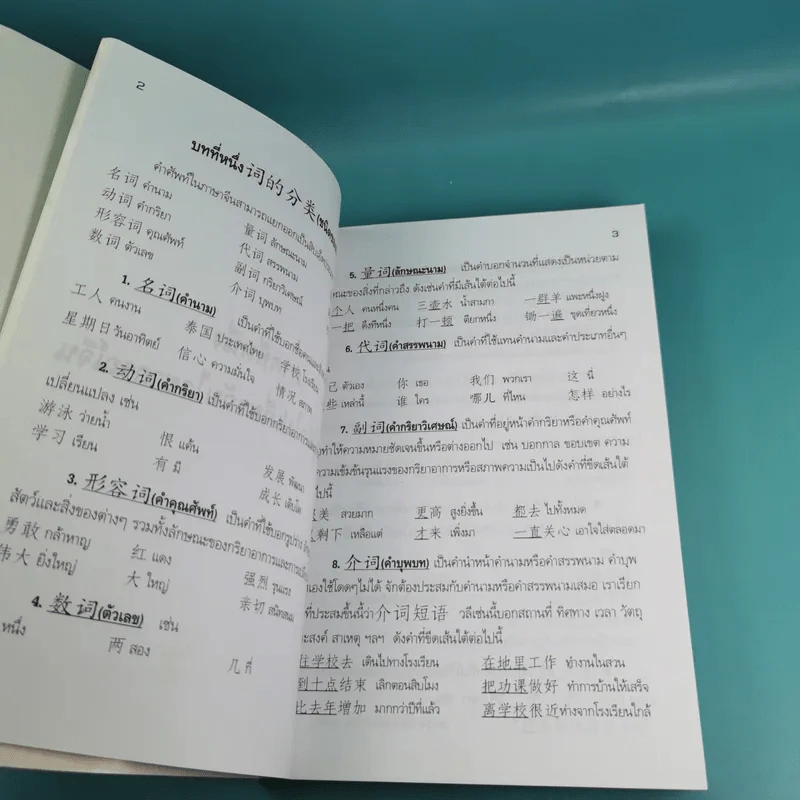 2
บทที่หนึ่ง 词的分类
คำศัพท์ในภาษาจีนสามารถแยกออกเป็นสิบเอ็ด
名词 คำนาม 量词 ลักษณะนาม
动词 คำกริยา 代词 สรรพนาม
形容词 คุณศัพท์ 副词 กริยาวิเศษณ์
数词 ตัวเลข 介词 บุพบท
1. 名词(คำนาม) เป็นคำที่ใช้บอกชื่อ
工人 คนงาน 泰国 ประเทศไทย 学校 โรงเรียน
星期日 วันอาทิตย์ 信心 ความมั่นใจ 情况 สภาพ
2. 动词(คำกริยา) เป็นคำที่ใช้บอกกริยาอาการ
เปลี่ยนแปลง เช่น
游泳 ว่ายน้ำ 恨 แค้น 发展 พัฒนา
学习 เรียน 有 มี 成长 เติบโต
3. 形容词(คำคุณศัพท์) เป็นคำที่ใช้บอกรูปร่าง
สัตว์และสิ่งของต่างๆ รวมทั้งลักษณะของกริยาอาการและการ
勇敢 กล้าหาญ 红 แดง 强烈 รุนแรง
伟大 ยิ่งใหญ่ 大 ใหญ่ 亲切 สนิทสนม
4. 数词(ตัวเลข) เช่น
หนึ่ง 两 สอง 几 กี่
3
5. 量词(ลักษณะนาม) เป็นคำบอกจำนวนที่แสดงเป็นหน่วยตาม
ษณะของสิ่งที่กล่าวถึง ดังเช่นคำที่มีเส้นใต้ต่อไปนี้
个人 คนหนึ่งคน 三壶水 น้ำสามกา 一群羊 แพะหนึ่งฝูง
一把 ดึงทีหนึ่ง 打一顿 ตียกหนึ่ง 锄一遍 ขุดเที่ยวหนึ่ง
6. 代词(คำสรรพนาม) เป็นคำที่ใช้แทนคำนามและคำประเภทอื่นๆ
己 ตัวเอง 你 เธอ 我们 พวกเรา 这 นี่
些 เหล่านี้ 谁 ใคร 哪儿 ที่ไหน 怎样 อย่างไร
7. 副词(คำกริยาวิเศษณ์) เป็นคำที่อยู่หน้าคำกริยาหรือคำคุณศัพท์
ทำให้ความหมายชัดเจนขึ้นหรือต่างออกไป เช่น บอกกาล ขอบเขต ความ
ความเข้มข้นรุนแรงของกริยาอาการหรือสภาพความเป็นไปดังคำที่ขีดเส้นใต้
ปนี้
美 สวยมาก 更高 สูงยิ่งขึ้น 都去 ไปทั้งหมด
剩下 เหลือแต่ 才来 เพิ่งมา 一直关心 เอาใจใส่ตลอดมา
8. 介词(คำบุพบท) เป็นคำนำหน้าคำนามหรือคำสรรพนาม คำบุพ
เองใช้โดดๆไม่ได้ จักต้องประสมกับคำนามหรือคำสรรพนามเสมอ เราเรียก
ที่ประสมขึ้นนี้ว่า介词短语 วลีเช่นนี้บอกสถานที่ ทิศทาง เวลา วัตถุ
ะสงค์ สาเหตุ ฯลฯ ดังคำที่ขีดเส้นใต้ต่อไปนี้
往学校去 เดินไปทางโรงเรียน 在地里工作 ทำงานในสวน
到十点结束 เลิกตอนสิบโมง 把功课做好 ทำการบ้านให้เสร็จ
比去年增加 มากกว่าปีที่แล้ว 离学校很近 ห่างจากโรงเรียนใกล้